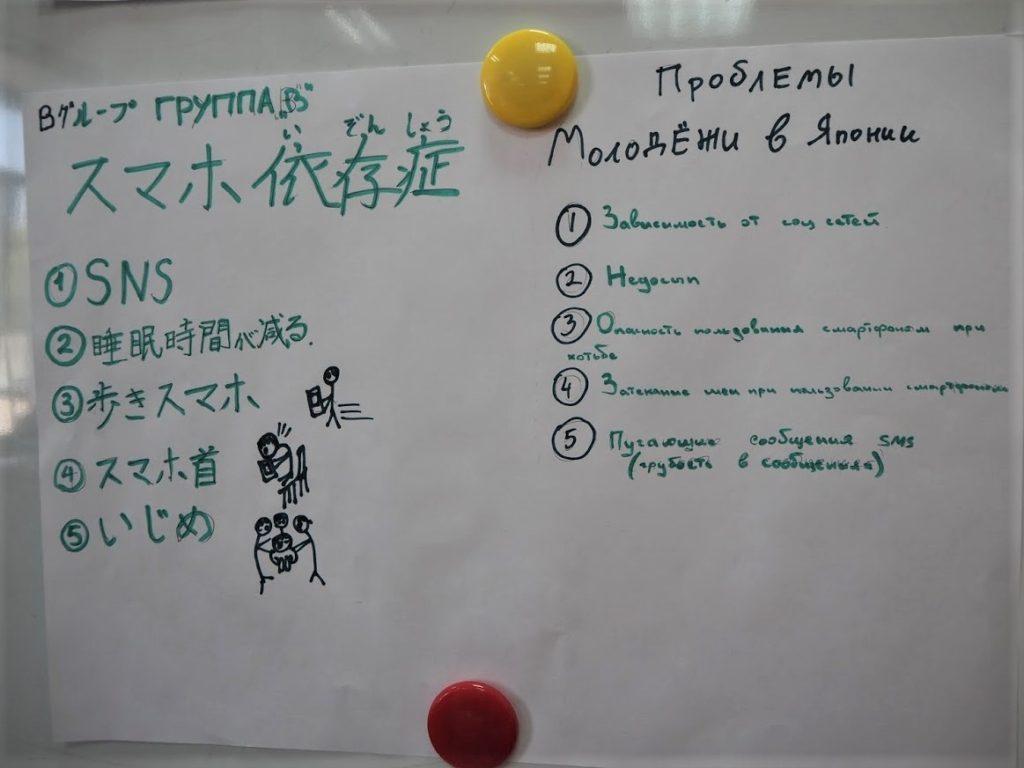 Bグループ ГРУППА „B"
い ぞん しょう
スマホ依存症
① SNS
② 睡眠時間が減る.
③ 歩きスマホ
④ スマホ首
⑤ いじめ
Проблемы
Молодёжи в Японии
① Зависимость от соц сетей
② Недосып
③ Опасность пользования смартфоном при
хотьбе
④ Затекание шеи при пользовании смартфоном
⑤ Пугающие сообщения SMS
(грубость в сообщениях)